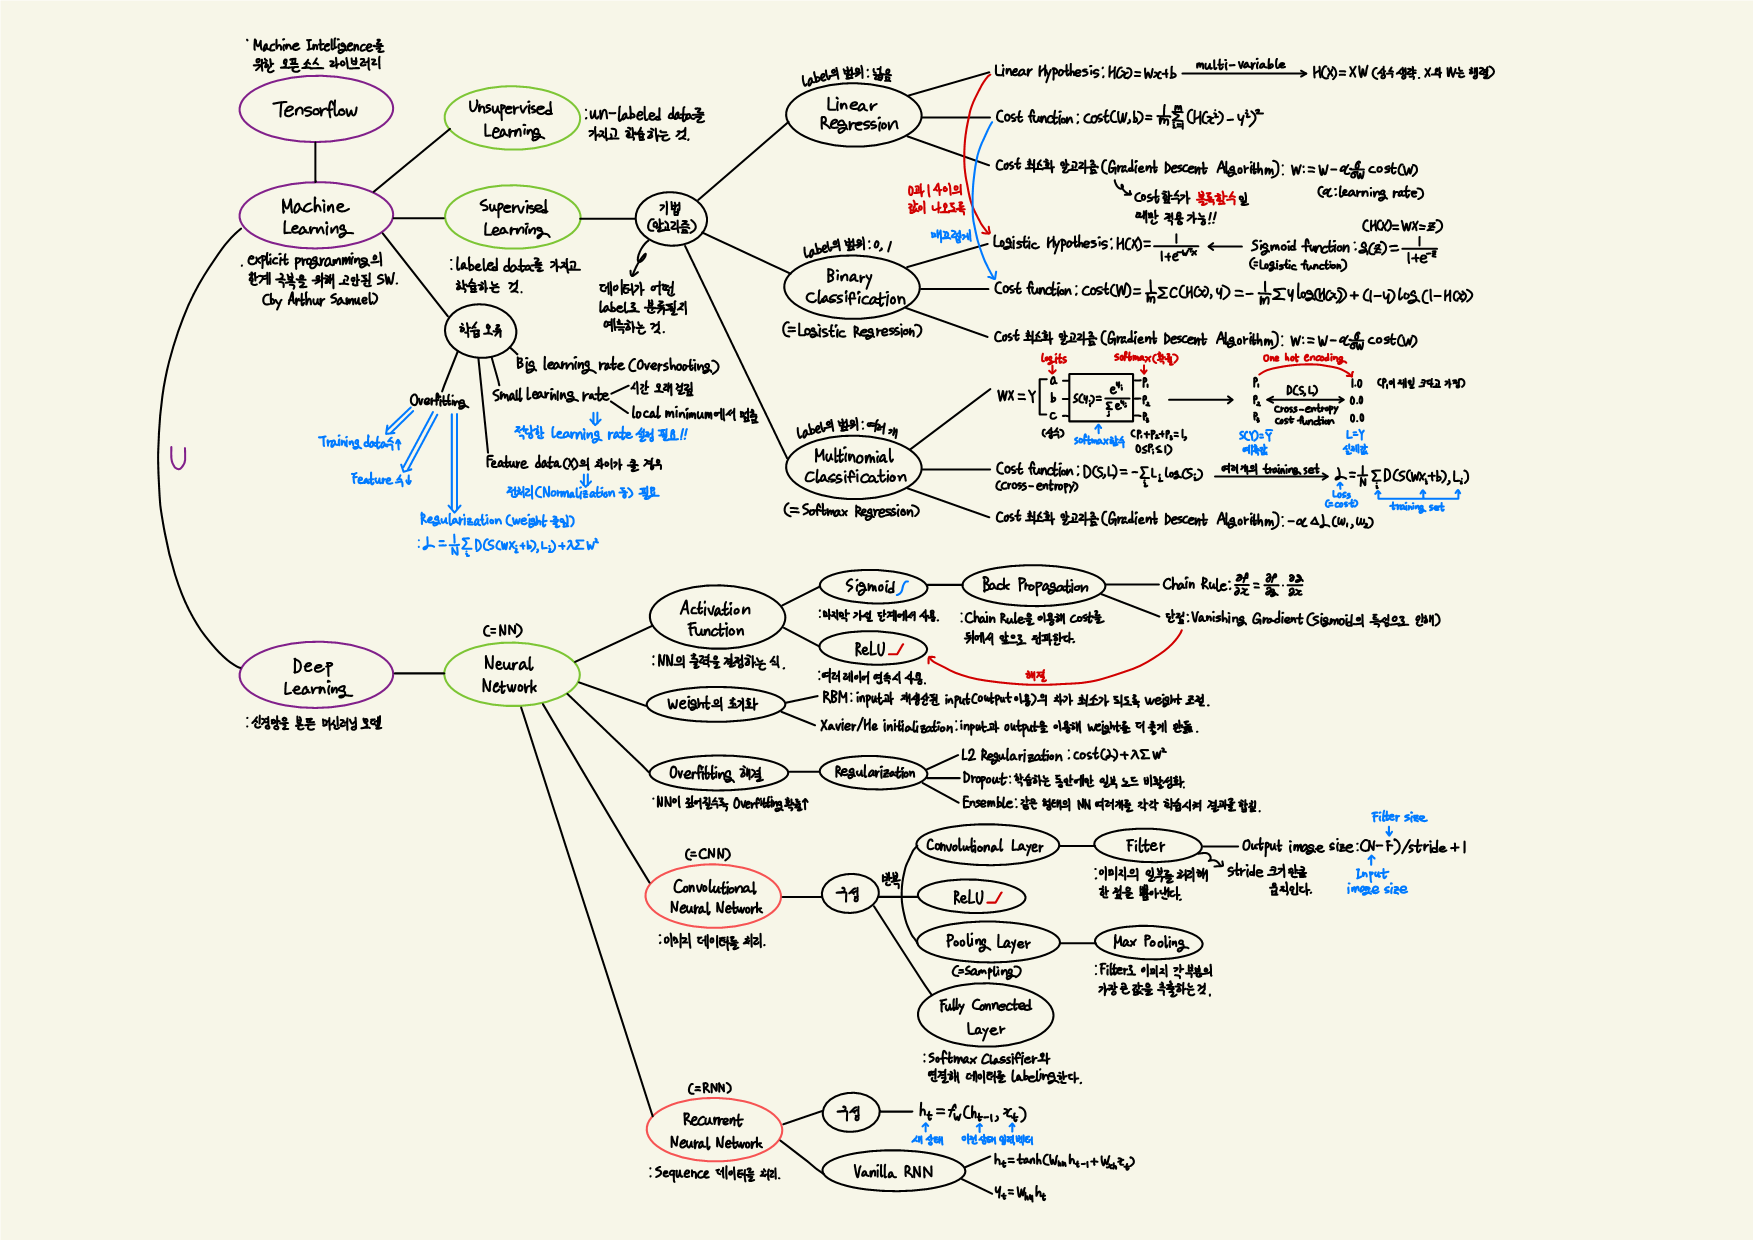 : Machine Intelligence를
위한 오픈소스 라이브러리
Tensorflow
Machine
Learning
: explicit programming의
한계 극복을 위해 고안된 SW.
(by Arthur Samuel)
U
Unsupervised
Learning
: un-labeled data를
가지고 학습하는 것.
Supervised
Learning
: labeled data를 가지고
학습하는 것.
학습 오류
Big learning rate (Overshooting)
Small learning rate
시간 오래 걸림
local minimum에서 멈춤
적당한 learning rate 설정 필요!!
Feature data(X)의 차이가 클 경우
전처리(Normalization 등) 필요
Overfitting
Training data수↑
Feature 수↓
Regularization (weight 줄임)
: L = 1/N Σi D(S(WXi+b), Li) + λΣW²
기법
(알고리즘)
데이터가 어떤
label로 분류될지
예측하는 것.
label의 범위: 넓음
Linear
Regression
Linear Hypothesis: H(x) = Wx+b
multi-variable
H(X) = XW (상수 생략. X와 W는 행렬)
Cost function: cost(W,b) = 1/m Σ(i=1→m) (H(xⁱ) - yⁱ)²
Cost 최소화 알고리즘(Gradient Descent Algorithm): W := W - α ∂/∂W cost(W)
(α: learning rate)
Cost 함수가 볼록함수일
때만 적용 가능!!
0과 1 사이의
값이 나오도록
매끄럽게
label의 범위: 0, 1
Binary
Classification
(=Logistic Regression)
(H(X)=WX=z)
Logistic Hypothesis: H(X) = 1/(1+e^-WᵀX)
Sigmoid function: g(z) = 1/(1+e^-z)
(=logistic function)
Cost function: cost(W) = 1/m Σ C(H(x), y) = - 1/m Σ y log(H(x)) + (1-y) log(1-H(x))
Cost 최소화 알고리즘 (Gradient Descent Algorithm): W := W - α ∂/∂W cost(W)
label의 범위: 여러 개
Multinomial
Classification
(=Softmax Regression)
logits
softmax(확률)
One hot encoding
WX = Y
a
b
c
(상수)
S(yi) = e^yi / Σj e^yj
softmax함수
P1
P2
P3
(P1+P2+P3=1,
0≤Pi≤1)
P1
P2
P3
D(S,L)
Cross-entropy
Cost function
1.0
0.0
0.0
(P1이 제일 크다고 가정)
S(Y)=Ȳ
예측값
L=Y
실제값
Cost function: D(S,L) = -Σi Li log(Si)
(cross-entropy)
여러개의 training set
L = 1/N Σi D(S(WXi+b), Li)
Loss
(=cost)
training set
Cost 최소화 알고리즘 (Gradient Descent Algorithm): -α△L(w1, w2)
Deep
Learning
: 신경망을 본뜬 머신러닝 모델
(=NN)
Neural
Network
Activation
Function
: NN의 출력을 결정하는 식.
Sigmoid
: 마지막 가설 단계에서 사용.
ReLU
: 여러 레이어 연속시 사용.
Back Propagation
: Chain Rule을 이용해 cost를
뒤에서 앞으로 전파한다.
Chain Rule: ∂f/∂x = ∂f/∂g · ∂g/∂x
단점: Vanishing Gradient (Sigmoid의 특성으로 인해)
해결
Weight의 초기화
RBM: input과 재생산된 input(output 이용)의 차가 최소가 되도록 weight 조절.
Xavier/He initialization: input과 output을 이용해 weight를 더 좋게 만듦.
Overfitting 해결
: NN이 깊어질수록 Overfitting 확률↑
Regularization
L2 Regularization: cost(L)+λΣW²
Dropout: 학습하는 동안에만 일부 노드 비활성화.
Ensemble: 같은 형태의 NN 여러개를 각각 학습시켜 결과를 합침.
(=CNN)
Convolutional
Neural Network
: 이미지 데이터를 처리.
구성
반복
Convolutional Layer
Filter
: 이미지의 일부를 처리해
한 값을 뽑아낸다.
Stride 크기만큼
움직인다.
Filter size
Output image size: (N-F)/stride + 1
Input
image size
ReLU
Pooling Layer
(=Sampling)
Max Pooling
: Filter로 이미지 각 부분의
가장 큰 값을 추출하는 것.
Fully Connected
Layer
: Softmax Classifier와
연결해 데이터를 labeling한다.
(=RNN)
Recurrent
Neural Network
: Sequence 데이터를 처리.
구성
ht = fw(ht-1, xt)
새 상태
이전 상태 입력 벡터
Vanilla RNN
ht = tanh(Whh ht-1 + Wxh xt)
yt = Why ht